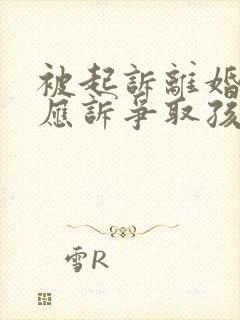 被起訴離婚
應訴爭取孩
雪R